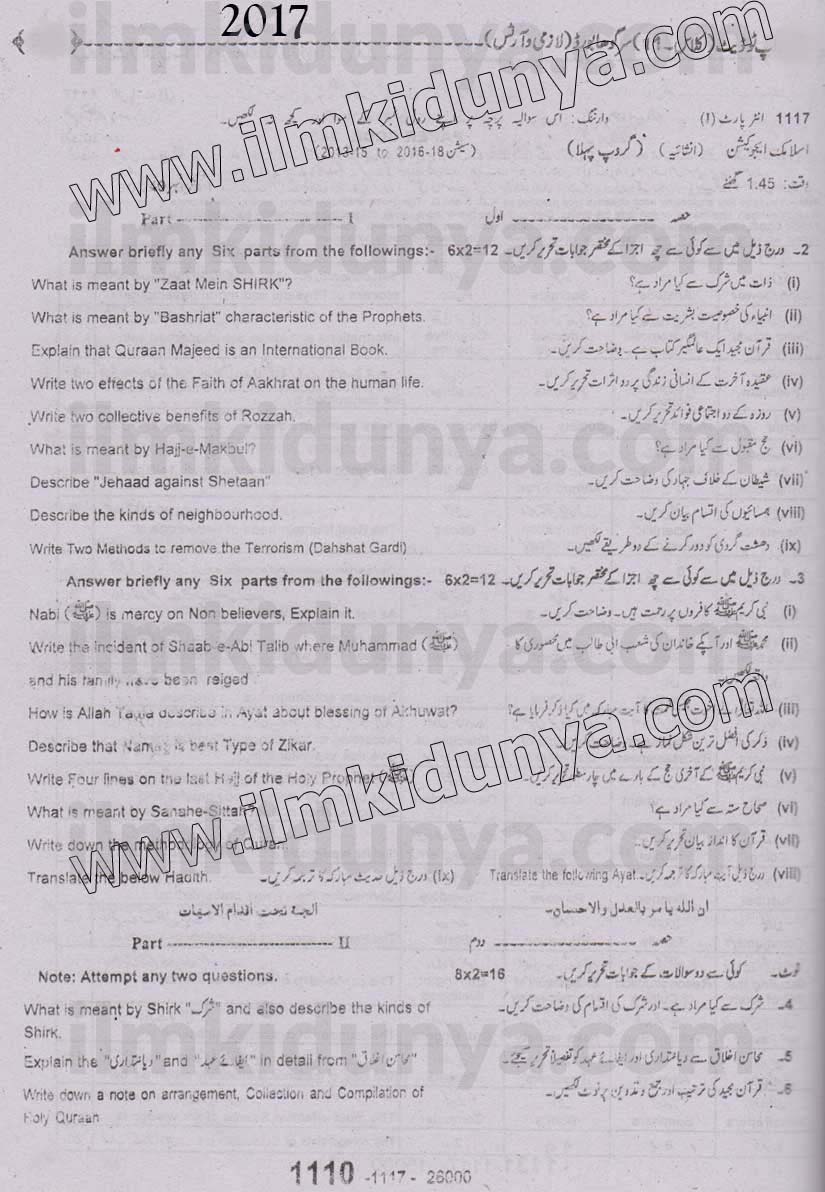 2017
پ ٹو ڈیٹ (کلاس۔11) سرگودھا بورڈ (لازمی و آرٹس)
1117 انٹر پارٹ (I) وارننگ: اس سوالیہ پرچہ پر اپنے رول نمبر کے سوا اور کچھ نہ لکھیں۔
اسلامک ایجوکیشن (انشائیہ) (گروپ پہلا) (سیشن 18-2016 to 2013-15)
وقت: 1.45 گھنٹے
Part ---------------------- I حصہ ---------------------- اول
Answer briefly any Six parts from the followings:- 6x2=12 2۔ درج ذیل میں سے کوئی سے چھ اجزا کے مختصر جوابات تحریر کریں۔
What is meant by "Zaat Mein SHIRK"? (i) ذات میں شرک سے کیا مراد ہے؟
What is meant by "Bashriat" characteristic of the Prophets. (ii) انبیاء کی خصوصیت بشریت سے کیا مراد ہے؟
Explain that Quraan Majeed is an International Book. (iii) قرآن مجید ایک عالمگیر کتاب ہے۔ وضاحت کریں۔
Write two effects of the Faith of Aakhrat on the human life. (iv) عقیدہ آخرت کے انسانی زندگی پر دو اثرات تحریر کریں۔
Write two collective benefits of Rozzah. (v) روزہ کے دو اجتماعی فوائد تحریر کریں۔
What is meant by Hajj-e-Makbul? (vi) حج مقبول سے کیا مراد ہے؟
Describe "Jehaad against Shetaan" (vii) شیطان کے خلاف جہاد کی وضاحت کریں۔
Describe the kinds of neighbourhood. (viii) ہمسائیوں کی اقسام بیان کریں۔
Write Two Methods to remove the Terrorism (Dahshat Gardi) (ix) دہشت گردی کو دور کرنے کے دو طریقے لکھیں۔
Answer briefly any Six parts from the followings:- 6x2=12 3۔ درج ذیل میں سے کوئی سے چھ اجزا کے مختصر جوابات تحریر کریں۔
Nabi (ﷺ) is mercy on Non believers, Explain it. (i) نبی کریم ﷺ کافروں پر رحمت ہیں۔ وضاحت کریں۔
Write the incident of Shaab-e-Abi Talib where Muhammad (ﷺ) (ii) محمد ﷺ اور آپکے خاندان کی شعب ابی طالب میں محصوری کا
and his family have been reiged
How is Allah Taala describe in Ayat about blessing of Akhuwat? (iii) کا آیت مبارکہ میں کیا ذکر فرمایا ہے؟
Describe that Namaz is best Type of Zikar. (iv) ذکر کی افضل ترین شکل نماز ہے۔ وضاحت کریں۔
Write Four lines on the last Hajj of the Holy Prophet (ﷺ) (v) نبی کریم ﷺ کے آخری حج کے بارے میں چار سطریں تحریر کریں۔
What is meant by Sahahe-Sittah? (vi) صحاح ستہ سے کیا مراد ہے؟
Write down the methodology of Quran. (vii) قرآن کا انداز بیان تحریر کریں۔
Translate the below Hadith. (ix) درج ذیل حدیث مبارکہ کا ترجمہ کریں۔ Translate the following Ayat. (viii) درج ذیل آیت مبارکہ کا ترجمہ کریں۔
الجنة تحت اقدام الامهات ان الله يامر بالعدل والاحسان۔
Part ---------------------- II حصہ ---------------------- دوم
Note: Attempt any two questions. 8x2=16 نوٹ۔ کوئی سے دو سوالات کے جوابات تحریر کریں۔
What is meant by Shirk "شرک" and also describe the kinds of 4۔ شرک سے کیا مراد ہے۔ اور شرک کی اقسام کی وضاحت کریں۔
Shirk.
Explain the "دیانتداری" and "ایفائے عہد" in detail from "محاسن اخلاق" 5۔ محاسن اخلاق سے دیانتداری اور ایفائے عہد کو تفصیلاً تحریر کیجئے۔
Write down a note on arrangement, Collection and Compilation of 6۔ قرآن مجید کی ترتیب اور جمع و تدوین پر نوٹ لکھیں۔
Holy Quraan
1110 -1117- 26000
www.ilmkidunya.com
www.ilmkidunya.com
ilmkidunya.com
ilmkidunya.com
ilmkidunya.com
ilmkidunya.com
ilmkidunya.com
ilmkidunya.com